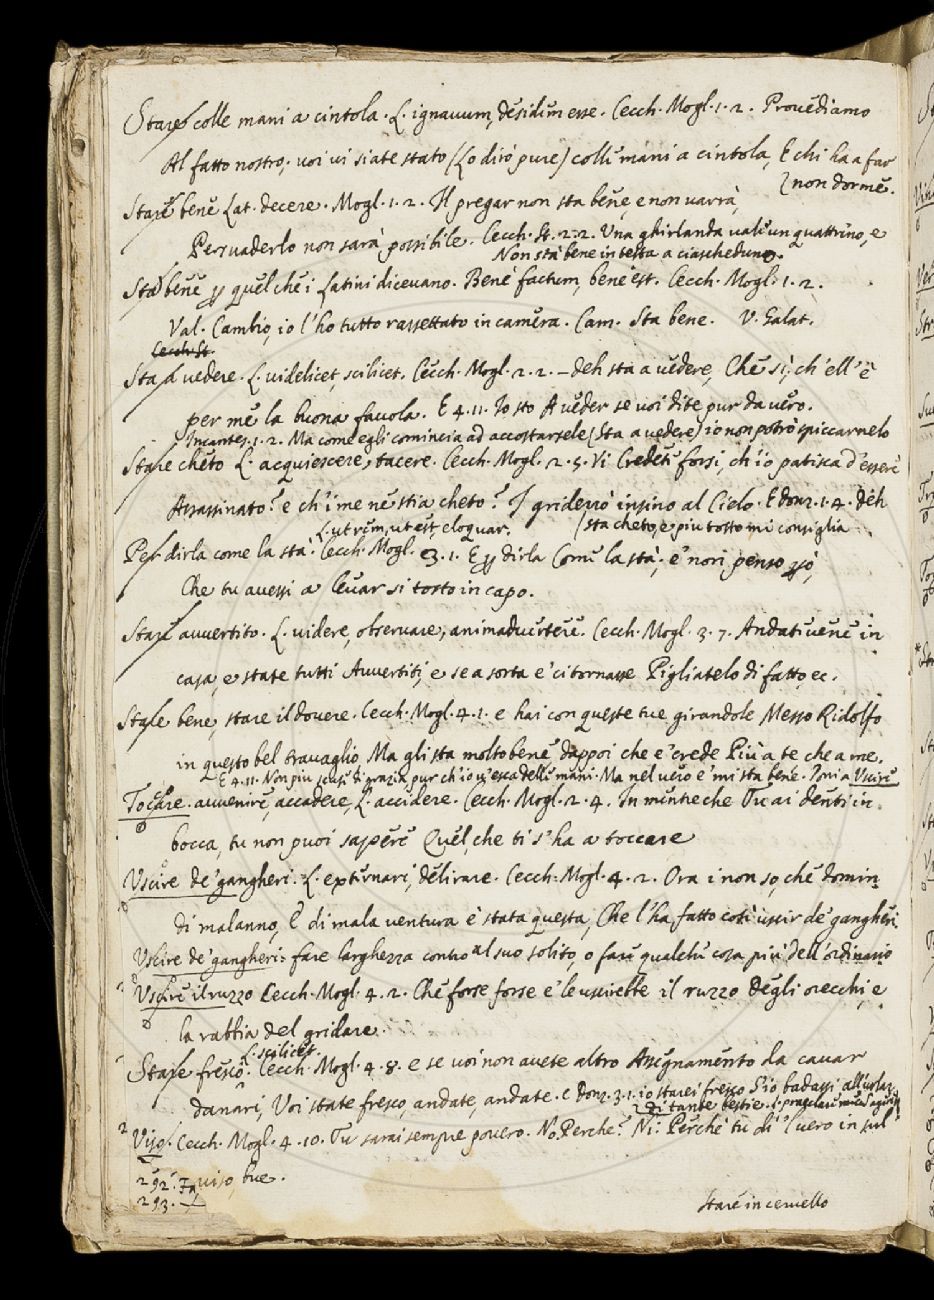 Stare colle mani a cintola. L. ignauum, desidem esse. Cecch. Mogl. 1. 2. Prouediamo
Al fatto nostro; uoi ui siate stato (Lo dirò pure) colle mani a cintola, E chi ha a far
non dorme.
Stare bene Lat. decere. Mogl. 1. 2. Il pregar non sta bene, e non uarrà,
Persuaderlo non sarà possibile. Cecch. St. 2. 2. Una ghirlanda uale un quattrino, e
Non sta bene in testa a ciascheduno.
Sta bene quel che i Latini diceuano. Bene factum, bene est. Cecch. Mogl. 1. 2.
Val. Cambio, io l'ho tutto rassettato in camera. Cam. Sta bene. V. Galat.
Cecch. St.
Sta a uedere. L. uidelicet, scilicet. Cecch. Mogl. 2. 2. – deh sta a uedere, Che sì, ch'ell'è
per me la buona fauola. E 4. 11. Io sto A ueder se uoi dite pur da uero.
Incantes. 1. 2. Ma come egli comincia ad accostarsele (Sta a uedere) io non potrò spiccarnelo
Stare cheto L. acquiescere, tacere. Cecch. Mogl. 2. 5. Vi Credete forsi, ch'io patisca d'essere
Assassinato? e ch'i me ne stia cheto? I griderrò insino al Cielo. E Donz. 1. 4. deh
L. ut rem, ut est, eloquar. sta cheto, e piu tosto mi consiglia
Per dirla come la sta. Cecch. Mogl. 3. 1. E dirla Come la stà; e' non penso
Che tu auessi a leuar si tosto in capo.
Stare auuertito. L. uidere, obseruare, animaduertere. Cecch. Mogl. 3. 7. Andateuene in
casa, e state tutti Auuertiti, e se a sorta e' ci tornasse Pigliatelo di fatto, ec.
Stare bene, stare il douere. Cecch. Mogl. 4. 1. e hai con queste tue girandole Messo Ridolfo
in questo bel trauaglio, Ma gli sta molto bene dappoi che e' crede Più a te che a me.
E 4. 11. Non piu scuse di grazia, pur ch'io u'esca delle mani. Ma nel uero e' mi sta bene. Poni a Vscire
Toccare. auuenire, accadere, L. accidere. Cecch. Mogl. 2. 4. In mentre che Tu ai denti in
bocca, tu non puoi sapere Quel che ti s'ha a toccare
Vscire de' gangheri. L. externari, delirare. Cecch. Mogl. 4. 2. Ora i non so, che domin
di malanno, E di mala uentura è stata questa, Che l'ha fatto così uscir de' gangheri.
Vscire de' gangheri: fare larghezza contro al suo solito, o fare qualche cosa più dell'ordinario
Vscire il ruzzo Cecch. Mogl. 4. 2. Che forse forse e' le uscirebbe il ruzzo degli orecchi, e
la rabbia del gridare.
L. scilicet.
Stare fresco. Cecch. Mogl. 4. 8. e se uoi non auete altro Assegnamento da cauar
danari, Voi state fresco, andate, andate. E Donz. 3. 1. io starei fresco S'io badassi all'urlar
di tante bestie. L. praeclare mecum
Viso. Cecch. Mogl. 4. 10. Tu sarai sempre pouero. No. Perche? Ni: Perche tu di' 'l uero in sul
292. uiso, bue.
293.
Stare in ceruello